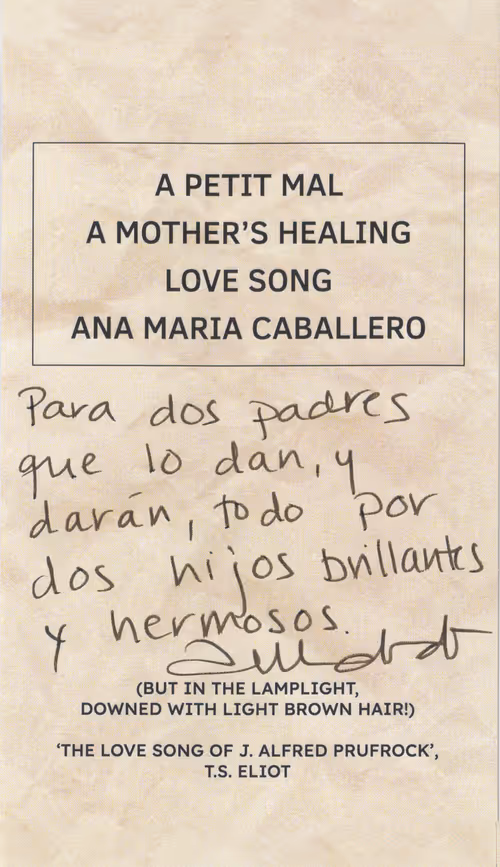 A PETIT MAL
A MOTHER'S HEALING
LOVE SONG
ANA MARIA CABALLERO
Para dos padres
que lo dan, y
darán, todo por
dos hijos brillantes
y hermosos.
(BUT IN THE LAMPLIGHT,
DOWNED WITH LIGHT BROWN HAIR!)
'THE LOVE SONG OF J. ALFRED PRUFROCK',
T.S. ELIOT